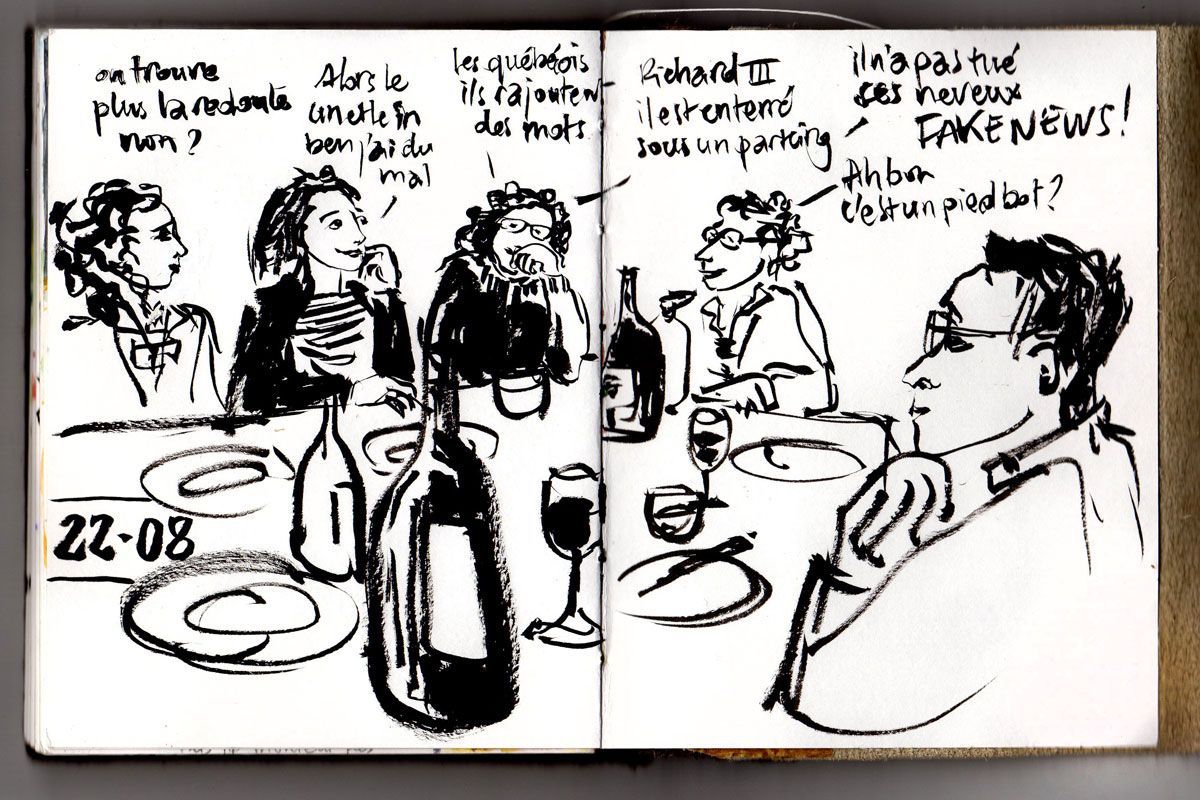 on trouve
plus la redoute
non ?
Alors le
un et le in
ben j'ai du
mal
les québécois
ils rajoutent
des mots
Richard III
il est enterré
sous un parking
il n'a pas tué
ses neveux
FAKE NEWS !
Ah bon
c'est un pied bot ?
22-08